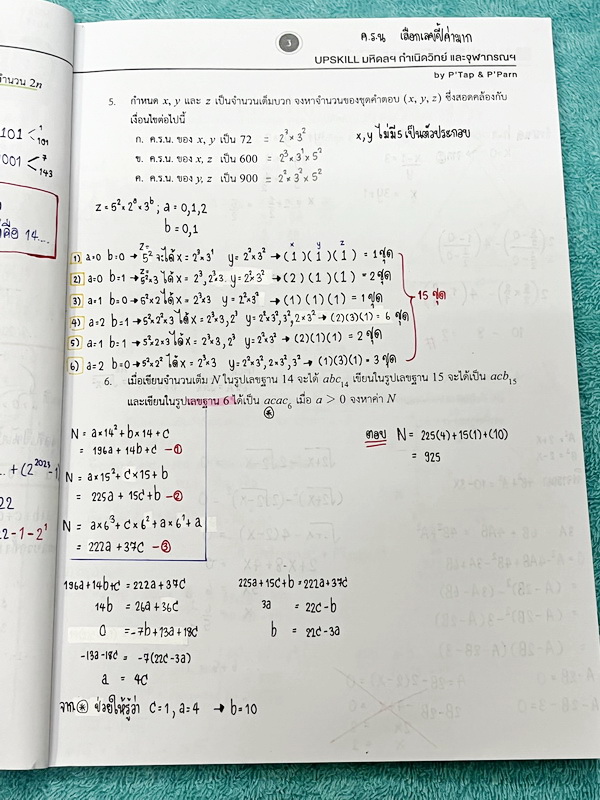 3
ค.ร.น เลือกเลขชี้ค่ามาก
UPSKILL มหิดลฯ กำเนิดวิทย์ และจุฬาภรณฯ
by P'Tap & P'Parn
5. กำหนด x, y และ z เป็นจำนวนเต็มบวก จงหาจำนวนของชุดคำตอบ (x, y, z) ซึ่งสอดคล้องกับ
เงื่อนไขต่อไปนี้
ก. ค.ร.น. ของ x, y เป็น 72 = 2³×3²
x,y ไม่มี 5 เป็นตัวประกอบ
ข. ค.ร.น. ของ x, z เป็น 600 = 2³×3¹×5²
ค. ค.ร.น. ของ y, z เป็น 900 = 2²×3²×5²
z = 5²×2ᵃ×3ᵇ ; a = 0,1,2
b = 0,1
x y z
1) a=0 b=0 → z= 5² จะได้ x = 2³×3¹ y = 2²×3² → (1)(1)(1) = 1 ชุด
2) a=0 b=1 → z= 5²×3 ได้ x = 2³, 2³×3 y = 2²×3² → (2)(1)(1) = 2 ชุด
3) a=1 b=0 → 5²×2 ได้ x = 2³×3 y = 2²×3² → (1)(1)(1) = 1 ชุด
15 ชุด
4) a=2 b=1 → 5²×2²×3 ได้ x = 2³×3, 2³ y = 2²×3², 3², 2×3² → (2)(3)(1) = 6 ชุด
5) a=1 b=1 → 5²×2×3 ได้ x = 2³×3, 2³ y = 2²×3² → (2)(1)(1) = 2 ชุด
6) a=2 b=0 → 5²×2² ได้ x = 2³×3 y = 2²×3², 2×3², 3² → (1)(3)(1) = 3 ชุด
6. เมื่อเขียนจำนวนเต็ม N ในรูปเลขฐาน 14 จะได้ abc₁₄ เขียนในรูปเลขฐาน 15 จะได้เป็น acb₁₅
และเขียนในรูปเลขฐาน 6 ได้เป็น acac₆ เมื่อ a > 0 จงหาค่า N
*
N = a×14²+b×14+c
= 196a + 14b + c — ①
N = a×15²+c×15+b
= 225a + 15c + b — ②
N = a×6³+c×6²+a×6¹+a
= 222a + 37c — ③
ตอบ N = 225(4)+15(1)+(10)
= 925
196a+14b+c = 222a+37c
14b = 26a+36c
0 = -7b+13a+18c
-13a-18c = -7(22c-3a)
a = 4c
225a+15c+b = 222a+37c
3a = 22c-b
b = 22c-3a
จาก * ช่วยให้รู้ว่า c=1, a=4 → b=10